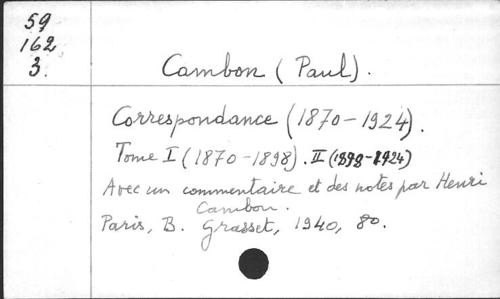 59
162
3.
Cambon (Paul).
Correspondance (1870-1924).
Tome I (1870-1898). II (1898-1924)
Avec un commentaire et des notes par Henri
Cambon.
Paris, B. Grasset, 1940, 8o.